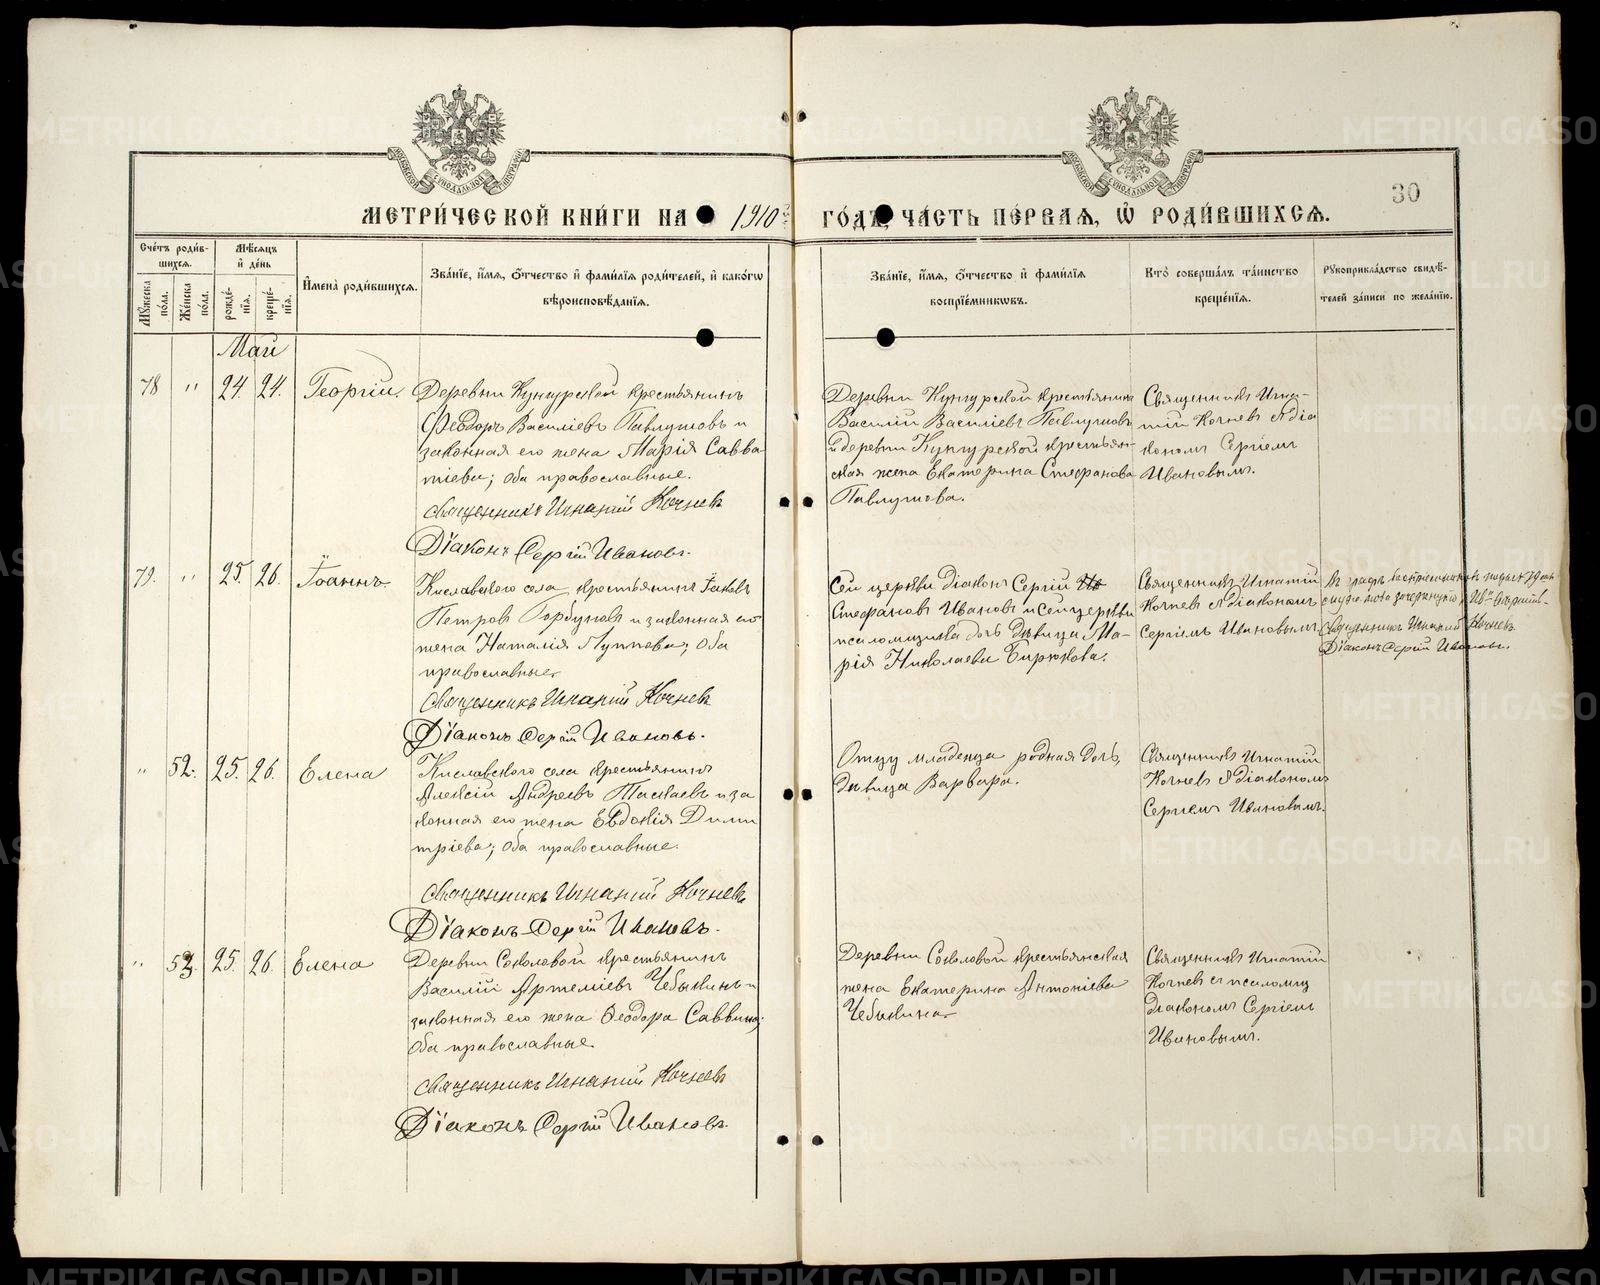 МЕТРИ́ЧЕСКОЙ КНИ́ГИ НА 1910
ГО́ДЪ, ЧА́СТЬ ПЕ́РВАѦ, Ѡ҆ РОДИ́ВШИХСѦ.
30
Сче́тъ роди́в-
шихсѧ.
Мѣ́сѧцъ
и҆ де́нь
Мꙋ́жеска
по́ла.
Же́нска
по́ла.
рожде́-
нїѧ.
креще́-
нїѧ.
И҆мена̀ роди́вшихсѧ.
Зва́нїе, и҆́мѧ, ѻ҆́тчество и҆ фами́лїѧ роди́телей, и҆ како́гѡ
вѣроисповѣ́данїѧ.
Зва́нїе, и҆́мѧ, ѻ҆́тчество и҆ фами́лїѧ
воспрїе́мникѡвъ.
Кто̀ соверша́лъ та́инство
креще́нїѧ.
Рꙋкоприкла́дство свидѣ́-
телей за́писи по жела́нїю.
Май
78 " 24. 24. Георгій.
Деревни Кунгурской крестьянинъ
Ѳеодоръ Василіевъ Павлушовъ и
законная его жена Марія Савва-
тіева; оба православные.
Священникъ Игнатій Кочневъ
Діаконъ Сергій Ивановъ.
Деревни Кунгурской крестьянинъ
Василій Василіевъ Павлушовъ
и деревни Кунгурской крестьян-
ская жена Екатерина Стефанова
Павлушова.
Священникъ Игна-
тій Кочневъ съ діа
кономъ Сергіемъ
Ивановымъ.
79. " 25. 26. Іоаннъ.
Киславскаго села крестьянинъ Іаковъ
Петровъ Горбуновъ и законная его
жена Наталія Луппова; оба
православные.
Священникъ Игнатій Кочневъ
Діаконъ Сергій Ивановъ.
Сей церкви діаконъ Сергій Ив
Стефановъ Ивановъ и сей церкви
псаломщика дочь дѣвица Ма-
рія Николаева Бирюкова.
Священникъ Игнатій
Кочневъ съ діакономъ
Сергіемъ Ивановымъ.
Въ графѣ воспріемниковъ подъ № 79
слово зачеркнуто „Ив“
Священникъ Игнатій Кочневъ
Діаконъ Сергій Ивановъ.
" 52. 25. 26. Елена
Киславскаго села крестьянинъ
Алексій Андреевъ Таскаевъ и за
конная его жена Евдокія Дими
тріева; оба православные.
Священникъ Игнатій Кочневъ
Діаконъ Сергій Ивановъ.
Отцу младенца родная дочь,
дѣвица Варвара.
Священникъ Игнатій
Кочневъ съ діакономъ
Сергіемъ Ивановымъ.
" 53. 25. 26. Елена
Деревни Соколовой крестьянинъ
Василій Артеміевъ Чебыкинъ и
законная его жена Ѳеодора Саввина;
оба православные
Священникъ Игнатій Кочневъ
Діаконъ Сергій Ивановъ.
Деревни Соколовой крестьянская
жена Екатерина Антоніева
Чебыкина.
Священникъ Игнатій
Кочневъ съ псаломщ
діакономъ Сергіемъ
Ивановымъ.
METRIKI.GASO-URAL.RU